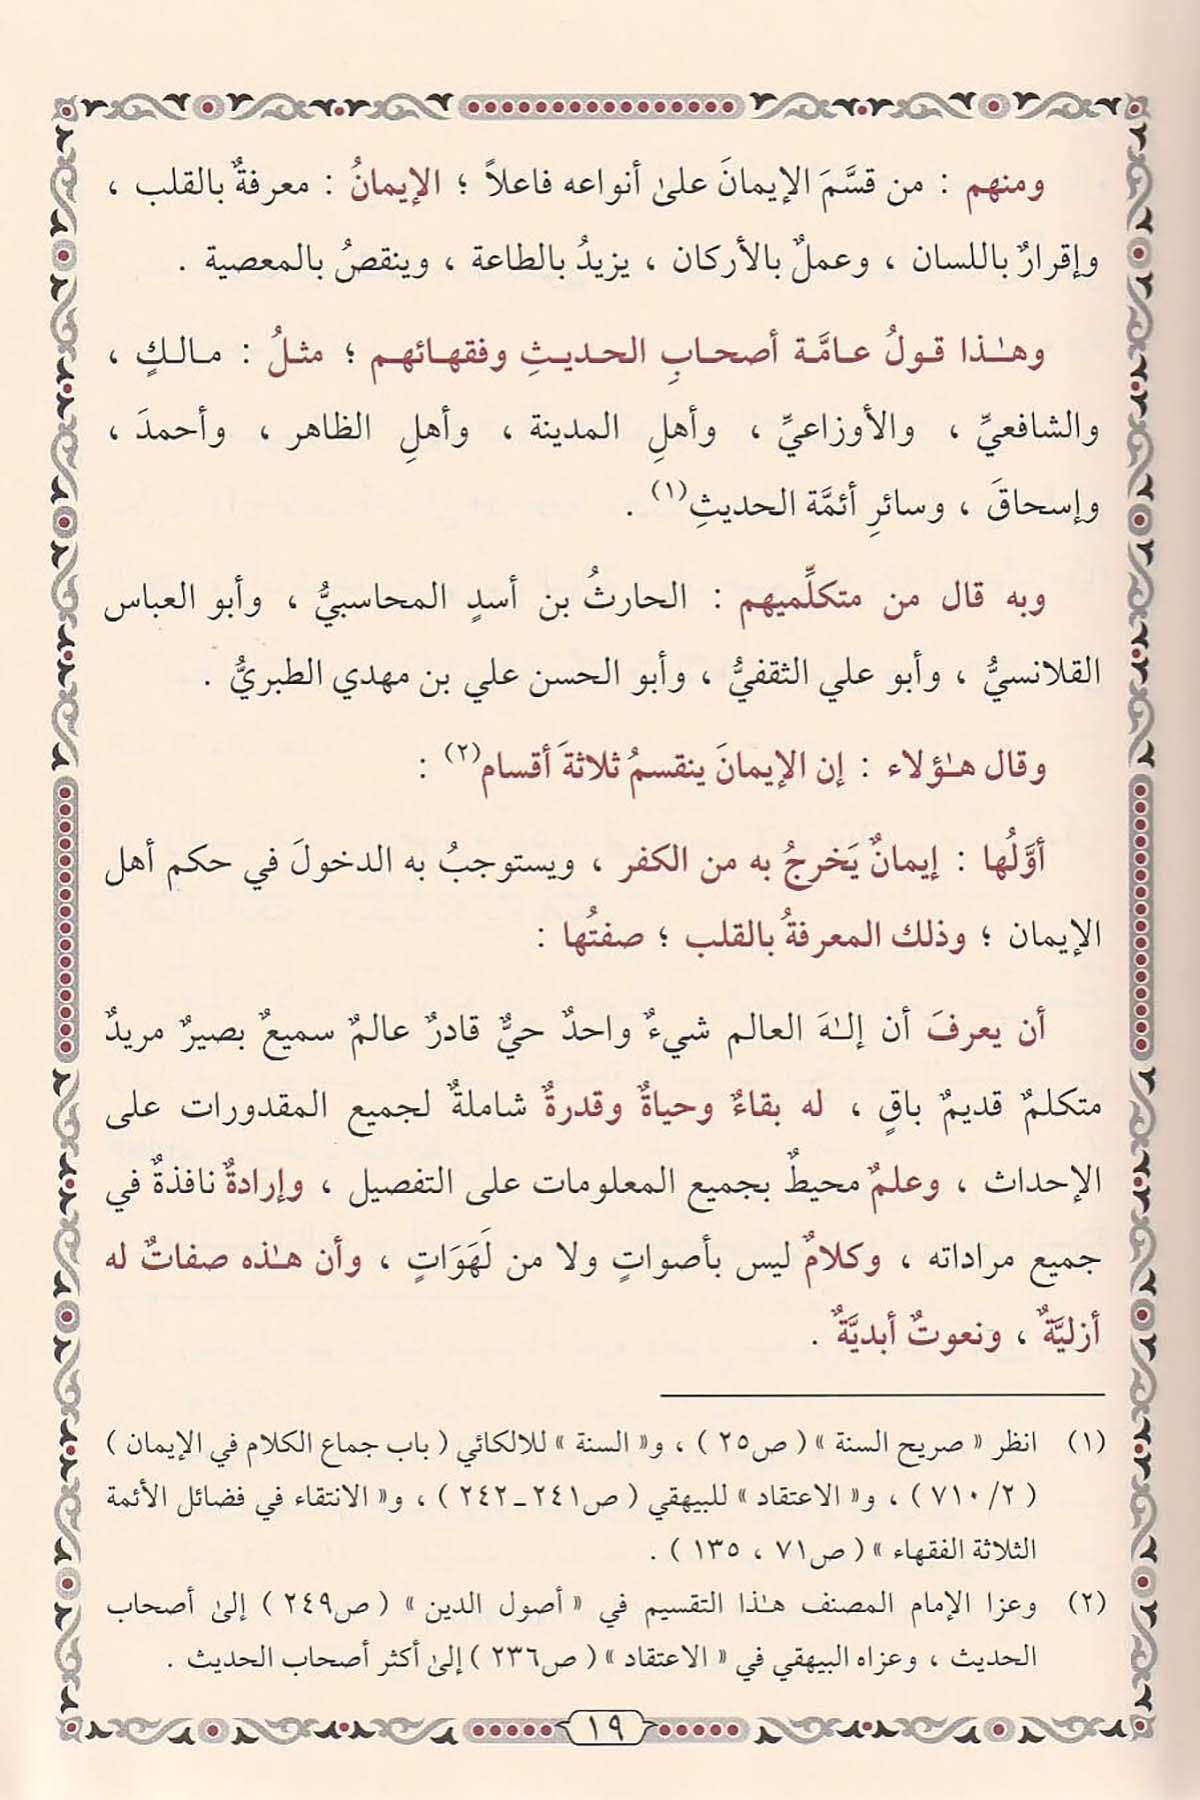 ومنهم : من قسَّمَ الإيمانَ علىٰ أنواعه فاعلاً ؛ الإيمانُ : معرفةٌ بالقلب ،
وإقرارٌ باللسان ، وعملٌ بالأركان ، يزيدُ بالطاعة ، وينقصُ بالمعصية .
وهـٰذا قـولُ عـامَّـة أصحـابِ الحـديـثِ وفقهـائهـم ؛ مثـلُ : مـالـكٍ ،
والشافعيِّ ، والأوزاعيِّ ، وأهلِ المدينة ، وأهلِ الظاهر ، وأحمدَ ،
وإسحاقَ ، وسائرِ أئمَّة الحديثِ(١) .
وبه قال من متكلِّميهم : الحارثُ بن أسدٍ المحاسبيُّ ، وأبو العباس
القلانسيُّ ، وأبو علي الثقفيُّ ، وأبو الحسن علي بن مهدي الطبريُّ .
وقال هـٰؤلاء : إن الإيمانَ ينقسمُ ثلاثةَ أقسام(٢) :
أوَّلُها : إيمانٌ يَخرجُ به من الكفر ، ويستوجبُ به الدخولَ في حكم أهل
الإيمان ؛ وذلك المعرفةُ بالقلب ؛ صفتُها :
أن يعرفَ أن إلـٰهَ العالم شيءٌ واحدٌ حيٌّ قادرٌ عالمٌ سميعٌ بصيرٌ مريدٌ
متكلمٌ قديمٌ باقٍ ، له بقاءٌ وحياةٌ وقدرةٌ شاملةٌ لجميع المقدورات على
الإحداث ، وعلمٌ محيطٌ بجميع المعلومات على التفصيل ، وإرادةٌ نافذةٌ في
جميع مراداته ، وكلامٌ ليس بأصواتٍ ولا من لَهَوَاتٍ ، وأن هـٰذه صفاتٌ له
أزليَّةٌ ، ونعوتٌ أبديَّةٌ .
(١) انظر « صريح السنة » ( ص٢٥ ) ، و« السنة » للالكائي ( باب جماع الكلام في الإيمان )
( ٢/ ٧١٠ ) ، و« الاعتقاد » للبيهقي ( ص٢٤١ـ٢٤٢ ) ، و« الانتقاء في فضائل الأئمة
الثلاثة الفقهاء » ( ص٧١ ، ١٣٥ ) .
(٢) وعزا الإمام المصنف هـٰذا التقسيم في « أصول الدين » ( ص٢٤٩ ) إلىٰ أصحاب
الحديث ، وعزاه البيهقي في « الاعتقاد » ( ص٢٣٦ ) إلىٰ أكثر أصحاب الحديث .
١٩